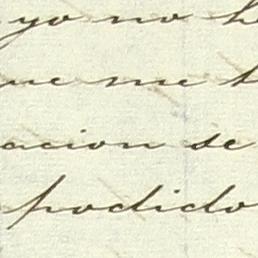 yo no h
ue me t
acion se
podido